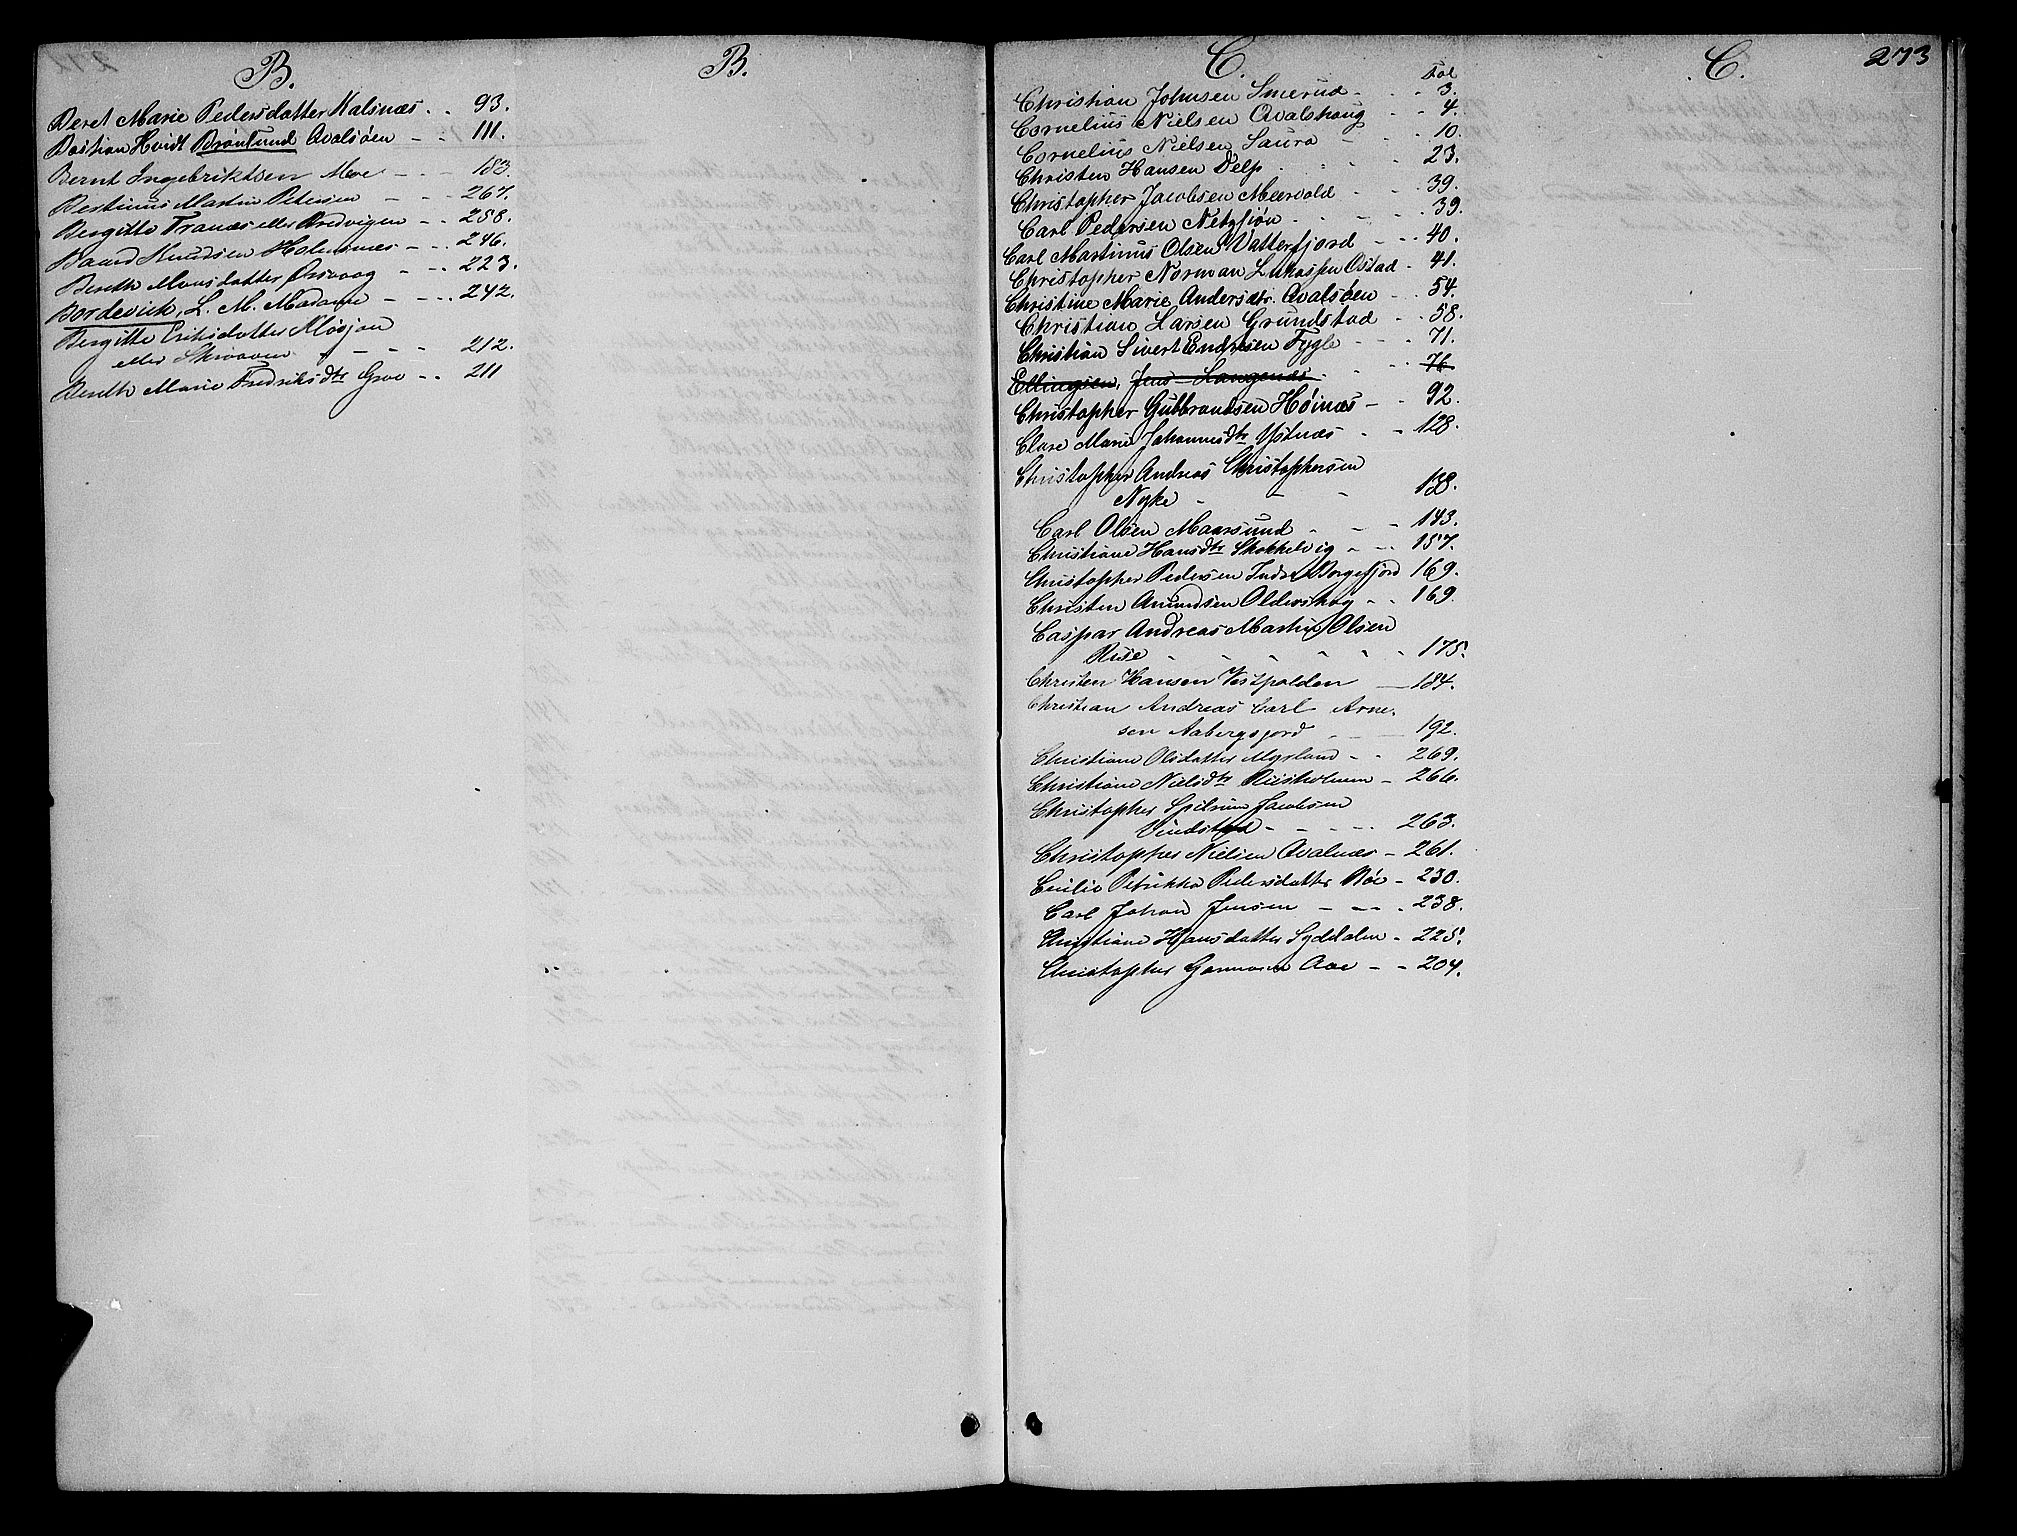 B.
B.
Beret Marie Pedersdatter Kalsnæs . . 93.
Bastian Hvidt Brønlund Qvalsøen - - 111.
Bernt Ingebriktsen Moe - - - 183.
Bestinus Martin Petersen - - - 267.
Bergitte Tranæs eller Bredvigen - - 258.
Baard Knudsen Holmnæs - - - 246.
Bereth Monsdatter Ørsvaag - - - 223.
Bordevick, L. M. Madame - - - 242.
Bergitte Eriksdatter Kløsjon
eller Skraaven - - - 212.
Bereth Marie Fredriksdtr Groe - - 211
C.
C.
273
Fol
Christian Johnsen Smerud - - - 3.
Cornelius Nielsen Qvalshaug - - 4.
Cornelius Nielsen Saura - 10.
Christen Hansen Delp - - - 23.
Christopher Jacobsen Meervold - - 39.
Carl Pedersen Netzjøn - - - 39.
Carl Martinus Olsen Vatterfjord - - - 40.
Christopher Norman Lukassen Ostad - 41.
Christine Marie Andersdtr. Qvalsøen - - 54.
Christian Larsen Grundstad - - 58.
Christian Sivert Endresen Fygle - - - 71.
Ellingsen, Jens Langenæs - - - 76
Christopher Gulbrandsen Høinæs - - 92.
Clare Marie Johannesdtr Ystnæs - - 128.
Christopher Andreas Christophersen
Nyke - - - 138.
Carl Olsen Maarsund - - - 143.
Christiane Hansdtr Stokkelvig - - - 157.
Christopher Pedersen Indre Borgefjord 169.
Christen Amundsen Olderskog - - 169.
Caspar Andreas Martin Olsen
Ruse - - - - - - 175.
Christen Hansen Vestpolden - 184.
Christian Andreas Carl Arne-
sen Aabergsjord - - 192.
Christiane Olsdatter Myrland - - 269.
Christiane Nielsdtr Riisholmen - 266.
Christopher Spilrum Jacobsen
Vindstad - - - - - 263.
Christopher Nielsen Qvalnæs - 261.
Cecilie Petrikka Pedersdatter Bøe - 230.
Carl Johan Jensen - - - - 238.
Christiane Hansdatter Sydalen - 225.
Christopher Aae - - 204.